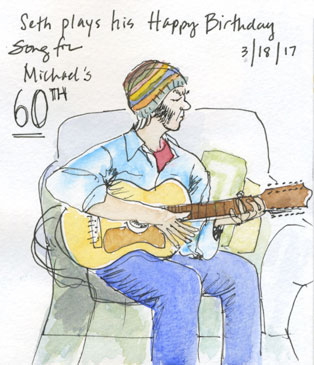 Seth plays his Happy Birthday
Song for 3/18/17
Michael's
60TH